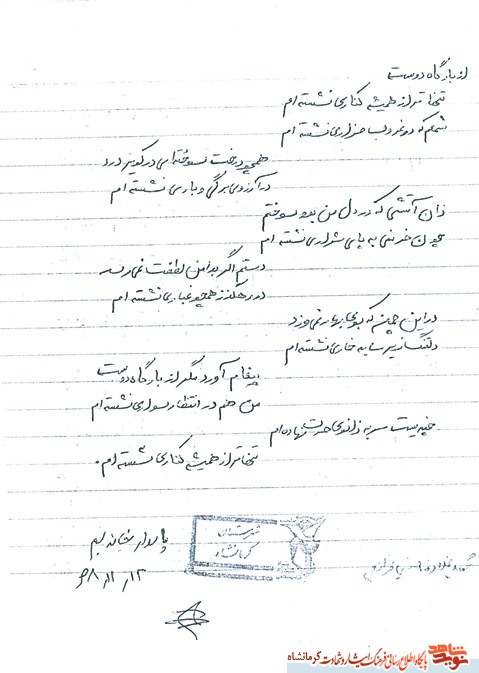 از بارگاه دوست
تنها تر از همیشه کناری نشسته ام
شمعم که در غروب مزاری نشسته ام
همچو درخت سوخته ای در کویر درد
در آرزوی برگی و باری نشسته ام
زان آتشی که در دل من بود سوختم
چون خرمنی به پای شراری نشسته ام
دستم اگر به دامن لطفت نمی رسد
در رهگذر همچو غباری نشسته ام
در این چمن که بوی بهار نمی وزد
دلتنگ زیر سایه خاری نشسته ام
پیغام آورد مگر از بارگاه دوست
من هم در انتظار سواری نشسته ام
سر به زانوی حسرت نهاده ام
تنها تر از همیشه کناری نشسته ام.
پاسدار
شهرستان
کرمانشاه
۶۸/۱/۱۲
نوید شاهد پایگاه اطلاع رسانی فرهنگ ایثار و شهادت کرمانشاه